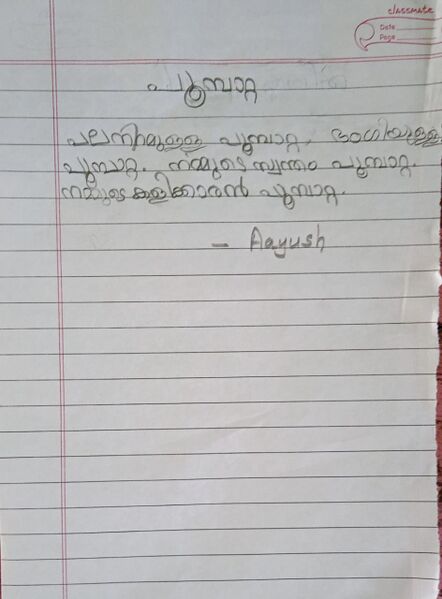 classmate
Date
Page
പൂമ്പാറ്റ
പലനിറമുള്ള പൂമ്പാറ്റ, ഭംഗിയുള്ള
പൂമ്പാറ്റ. നമ്മുടെ സ്വന്തം പൂമ്പാറ്റ.
നമ്മുടെ കളിക്കാരൻ പൂമ്പാറ്റ.
- Aayush